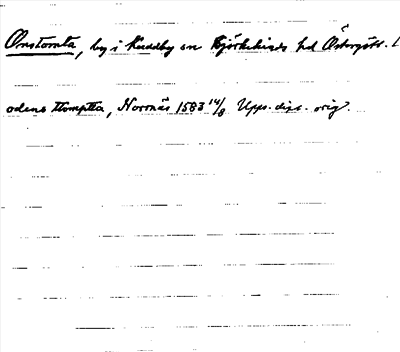 Onstomta, by i Kuddby sn Björkekinds hd Östergötl. L
odens ttomptta, Norrnäs 1583 14/8 Upps. dipl. orig.